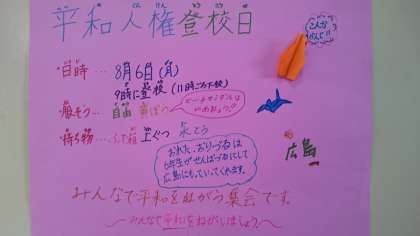 平和人権登校日
こんな かんじ!!
・日時… 8月6日(月)
9時に登校(11時ごろ下校)
・服そう… 自由 黄ぼう
ビーチサンダルは やめましょう!!
・持ち物… ふで箱 上ぐつ 水とう
おれた、おりづるは
6年生がせんばづるにして
広島にもっていってくれます。
広島
みんなで平和をねがう集会です。
〜みんなで平和をねがいましょう〜